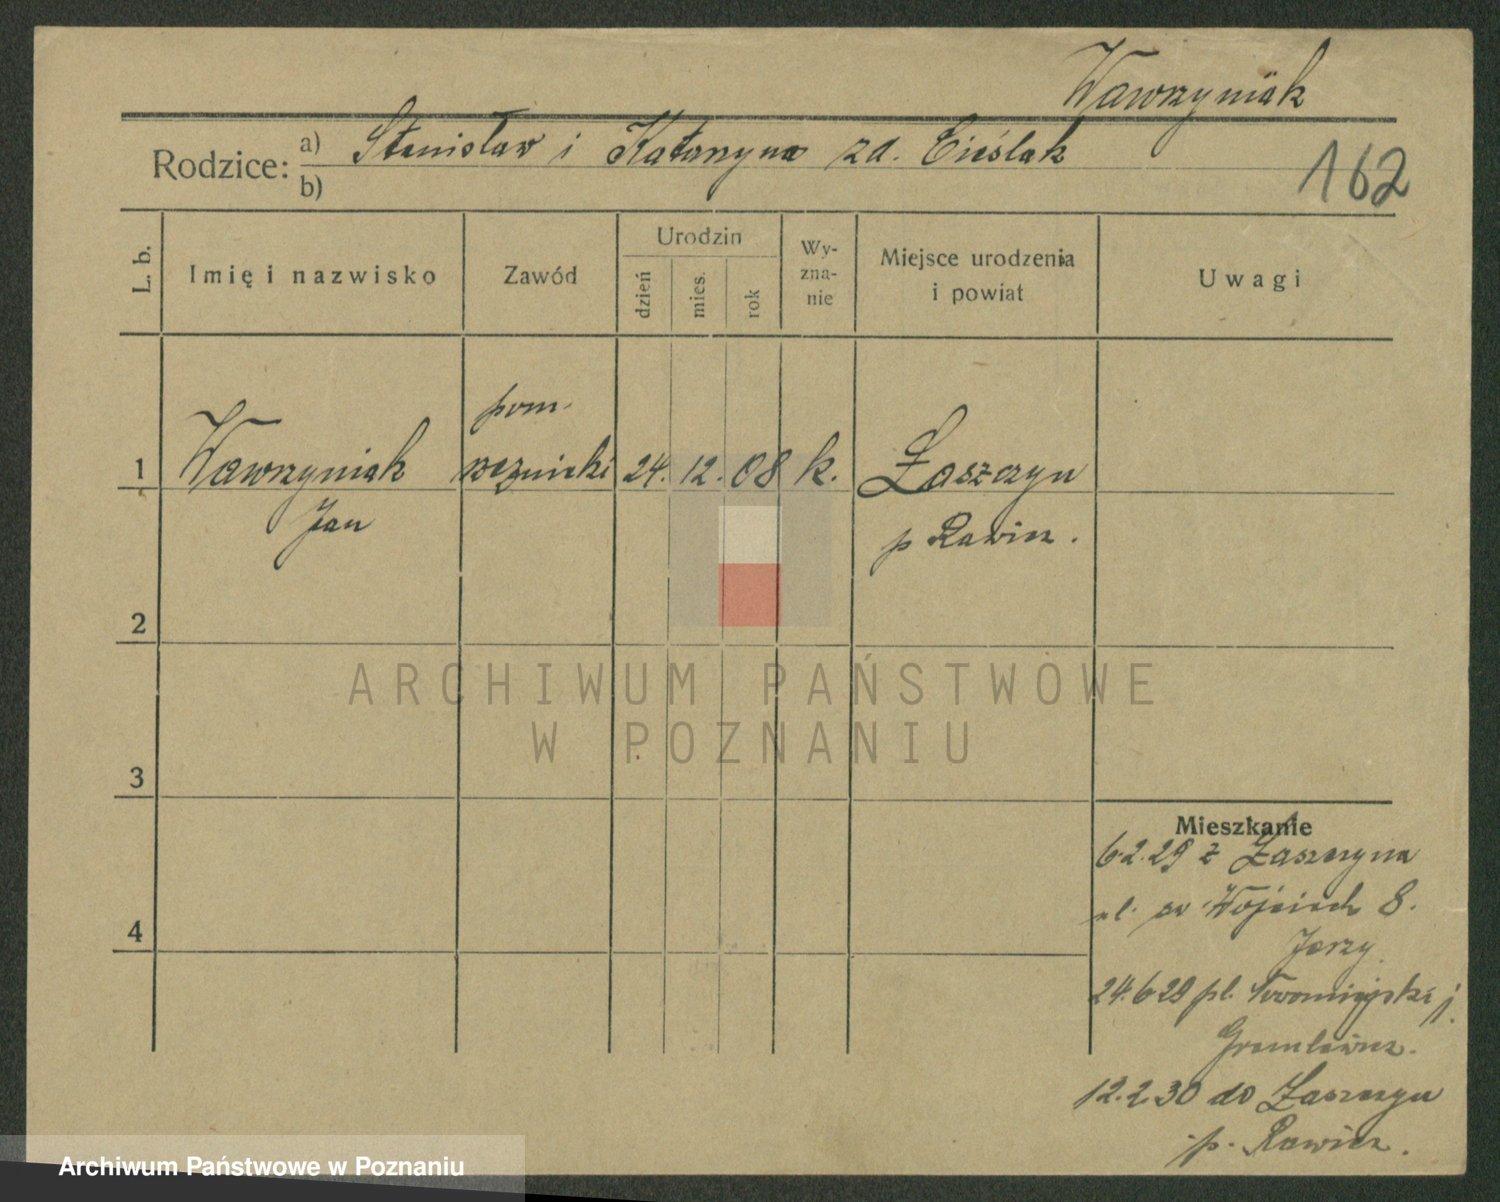 Wawrzyniak
Rodzice: a) Stanisław i Katarzyna zd. Cieślak
b)
162
L. b.
Imię i nazwisko
Zawód
Urodzin
dzień
mies.
rok
Wy-
zna-
nie
Miejsce urodzenia
i powiat
Uwagi
pom.
1 Wawrzyniak rzeźnicki 24. 12. 08 k. Łaszczyn
Jan
p Rawicz.
2
ARCHIWUM PAŃSTWOWE
W POZNANIU
3
Mieszkanie
6.2.29 z Łaszczyna
ul. św Wojciech 8.
Jerzy
4
24.6 29 pl. j.
12.2.30 do Łaszczyn
p. Rawicz.
Archiwum Państwowe w Poznaniu